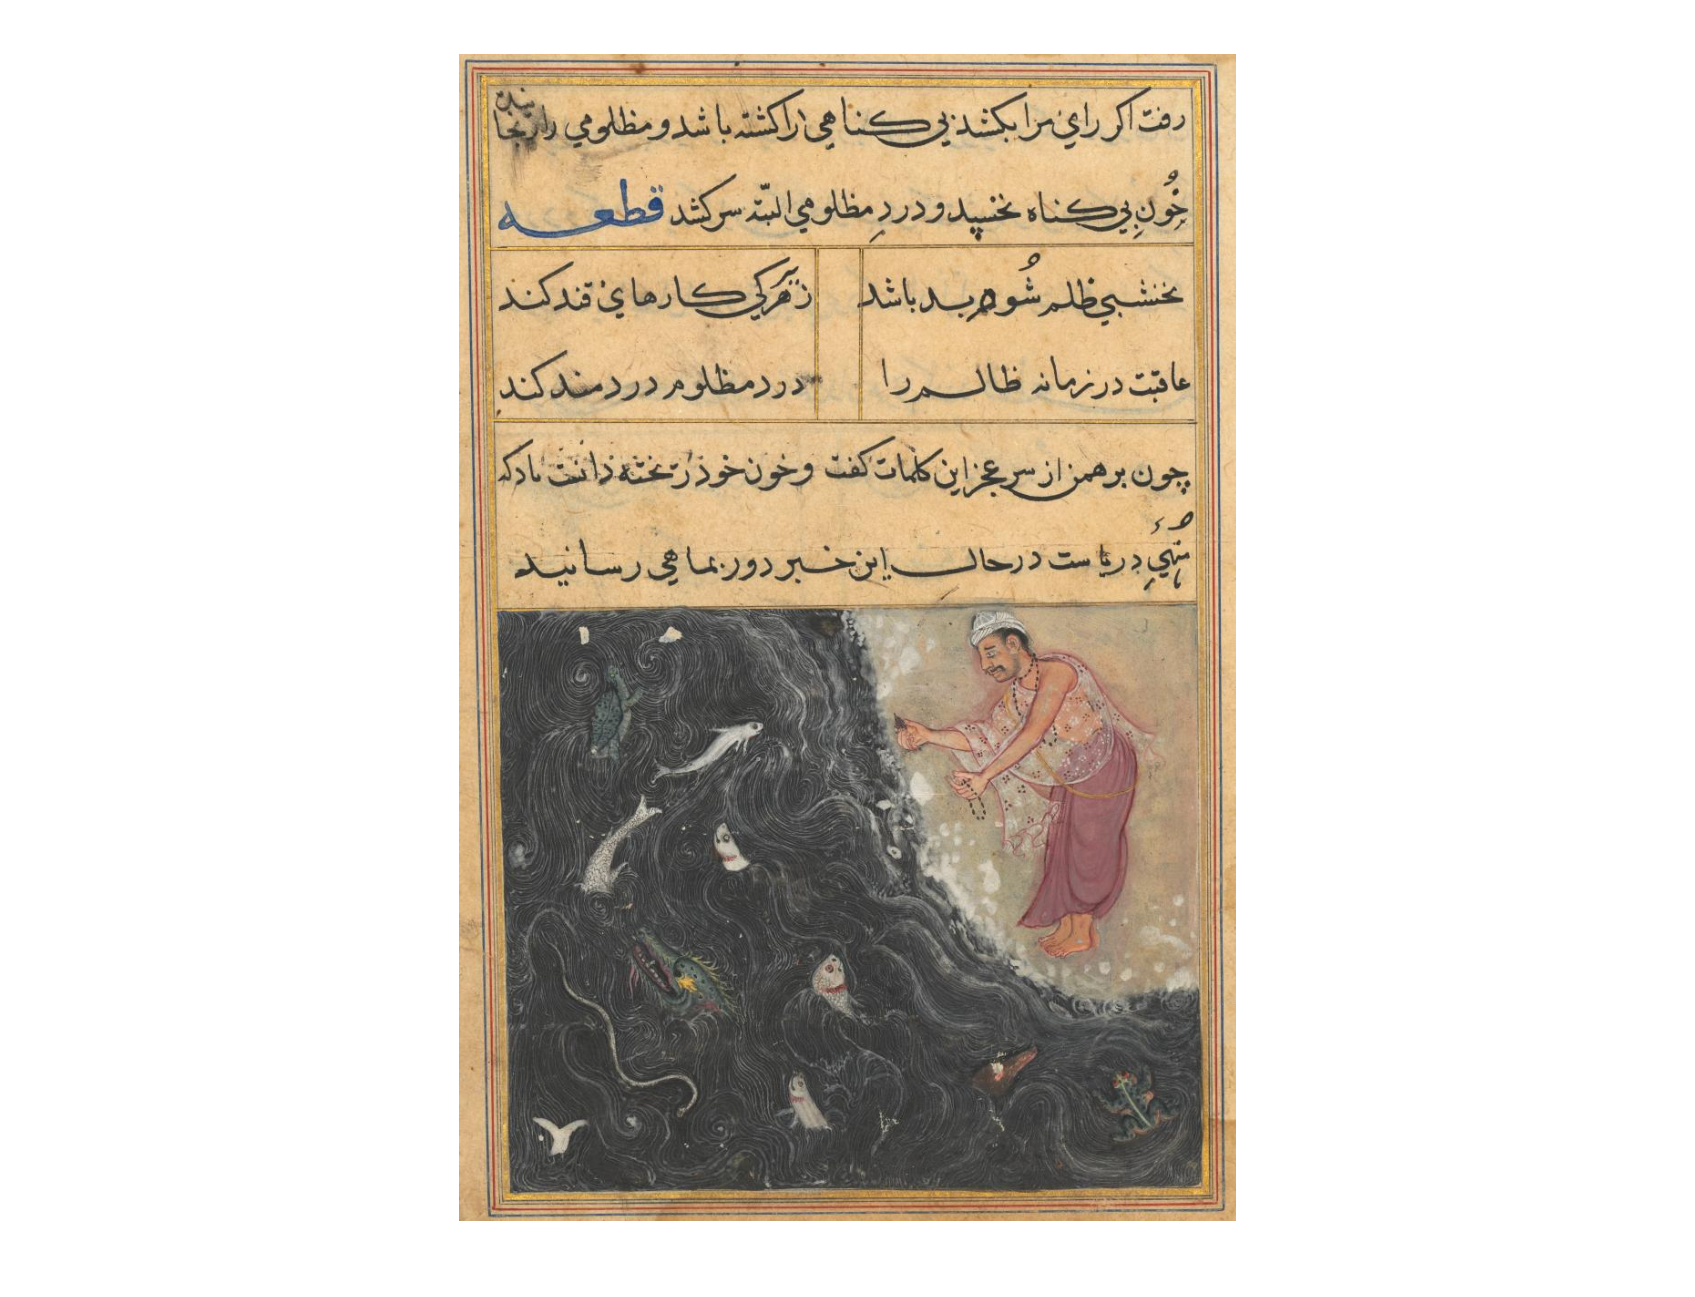 رفت اگر رای مرا بکشد بی کناهی را کشته باشد و مظلومی را
خُونِ بی کناه نخسپد و دردِ مظلومی البتّه سر کشد قطعه
نخشبی ظلم شُوم بد باشد زهر کی کارهای قند کند
عاقبت در زمانه ظالم را درد مظلوم دردمند کند
چون برهمن از سر عجز این کلمات کفت و خون خود ریخته دانست باد که
منهیِ دریاست در حال این خبر دور بماهی رسانید